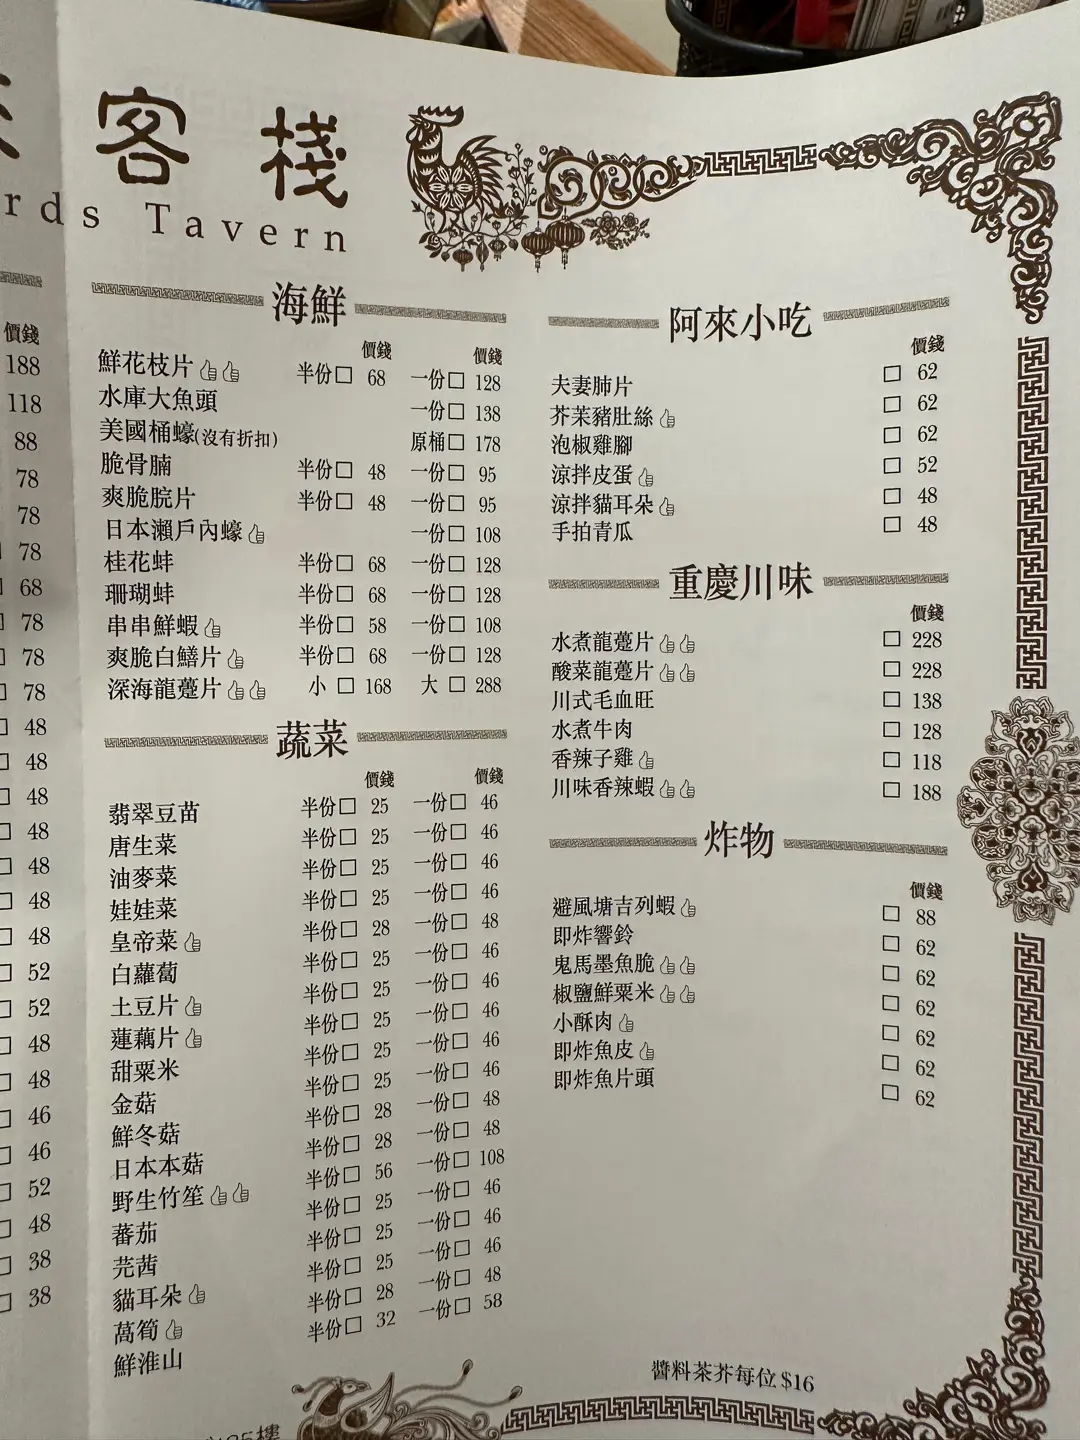 客棧
rds Tavern
價錢
188
118
88
78
78
78
68
78
78
78
48
48
48
48
48
48
48
52
52
48
48
46
46
52
48
38
38
海鮮
價錢 價錢
鮮花枝片 半份□ 68 一份□ 128
水庫大魚頭 一份□ 138
美國桶蠔(沒有折扣) 原桶□ 178
脆骨腩 半份□ 48 一份□ 95
爽脆脘片 半份□ 48 一份□ 95
日本瀨戶內蠔 一份□ 108
桂花蚌 半份□ 68 一份□ 128
珊瑚蚌 半份□ 68 一份□ 128
串串鮮蝦 半份□ 58 一份□ 108
爽脆白鱔片 半份□ 68 一份□ 128
深海龍躉片 小 □ 168 大 □ 288
蔬菜
價錢 價錢
翡翠豆苗 半份□ 25 一份□ 46
唐生菜 半份□ 25 一份□ 46
油麥菜 半份□ 25 一份□ 46
娃娃菜 半份□ 25 一份□ 46
皇帝菜 半份□ 28 一份□ 48
白蘿蔔 半份□ 25 一份□ 46
土豆片 半份□ 25 一份□ 46
蓮藕片 半份□ 25 一份□ 46
甜粟米 半份□ 25 一份□ 46
金菇 半份□ 25 一份□ 46
鮮冬菇 半份□ 28 一份□ 48
日本本菇 半份□ 28 一份□ 48
野生竹笙 半份□ 56 一份□ 108
蕃茄 半份□ 25 一份□ 46
芫茜 半份□ 25 一份□ 46
貓耳朵 半份□ 25 一份□ 46
萵筍 半份□ 28 一份□ 48
鮮淮山 半份□ 32 一份□ 58
阿來小吃
價錢
夫妻肺片 □ 62
芥茉豬肚絲 □ 62
泡椒雞腳 □ 62
涼拌皮蛋 □ 52
涼拌貓耳朵 □ 48
手拍青瓜 □ 48
重慶川味
價錢
水煮龍躉片 □ 228
酸菜龍躉片 □ 228
川式毛血旺 □ 138
水煮牛肉 □ 128
香辣子雞 □ 118
川味香辣蝦 □ 188
炸物
價錢
避風塘吉列蝦 □ 88
即炸響鈴 □ 62
鬼馬墨魚脆 □ 62
椒鹽鮮粟米 □ 62
小酥肉 □ 62
即炸魚皮 □ 62
即炸魚片頭 □ 62
醬料茶芥每位$16